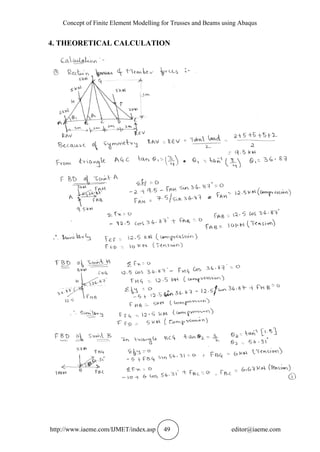 Concept of Finite Element Modelling for Trusses and Beams using Abaqus
4. THEORETICAL CALCULATION
Calculation :-
Member forces :-
5KN
G
5KN
5KN
3m
H
F
2KN
2KN
A
B
C
D
E
RAV
REV
Because of Symmetry RAV = REV = Total load / 2 = 2+5+5+5+2 / 2
= 9.5 KN
From triangle AGC tan θ1 = (3/4) • θ1 = tan⁻¹ (3/4) θ1 = 36.87
F BD of Joint A
2KN
FAH
A
FAB
9.5KN
Σfy = 0
-2 + 9.5 - FAH Sin 36.87° = 0
FAH = 7.5/Sin 36.87 • FAH = 12.5KN (compression)
Σ Fx = 0
- 12.5 cos 36.87° + FAB = 0
FAB = 12.5 cos 36.87°
FAB = 10KN (Tension)
∴ Similarly FEF = 12.5 KN (compression)
FED = 10 KN (Tension)
FBD of Joint H
5KN
FHG
36.87
12.5
FHB
Σ Fx = 0
12.5 cos 36.87 - FHG Cos 36.87° = 0
FHG = 12.5 KN (compression)
Σfy = 0
-5 + 12.5 Sin 36.87 - 12.5 Sin 36.87 + FHB = 0
FHB = 5KN (compression)
∴ Similary FFG = 12.5 KN (compression)
FFD = 5KN (Compression)
FBD of Joint B
5KN
FBG
56.31°
10KN
B
FBC
In triangle BCG tan θ2 = 3/2 θ2 = tan⁻¹ [1.5]
θ2 = 56.31°
Σfy = 0
-5 + FBG Sin 56.31 = 0, FBG = 6KN (Tension)
ΣFx = 0
-10 + 6 cos 56.31° + FBC = 0, FBC = 6.67KN (Tension)
http://www.iaeme.com/IJMET/index.asp 49 editor@iaeme.com